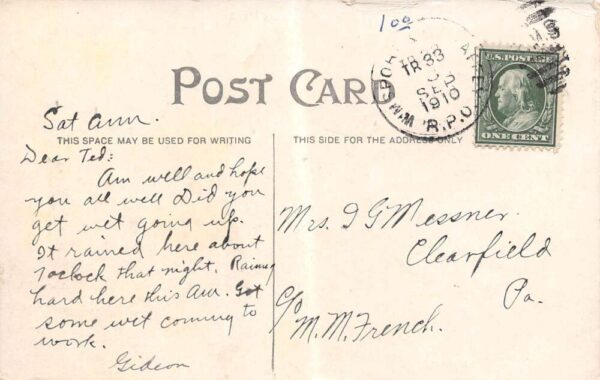 1 00
W'MSPORT
TR 33
3
SEP
1910
R.P.O.
U.S. POSTAGE
ONE CENT
POST CARD
THIS SPACE MAY BE USED FOR WRITING
THIS SIDE FOR THE ADDRESS ONLY
Sat am.
Dear Ted:
Am well and hope
you all well Did you
get wet going up.
It rained here about
7 oclock that night. Raining
hard here this Am. Got
some wet coming to
work.
Gideon
Mrs. I G Messner.
Clearfield
Pa.
c/o
M. M. French.